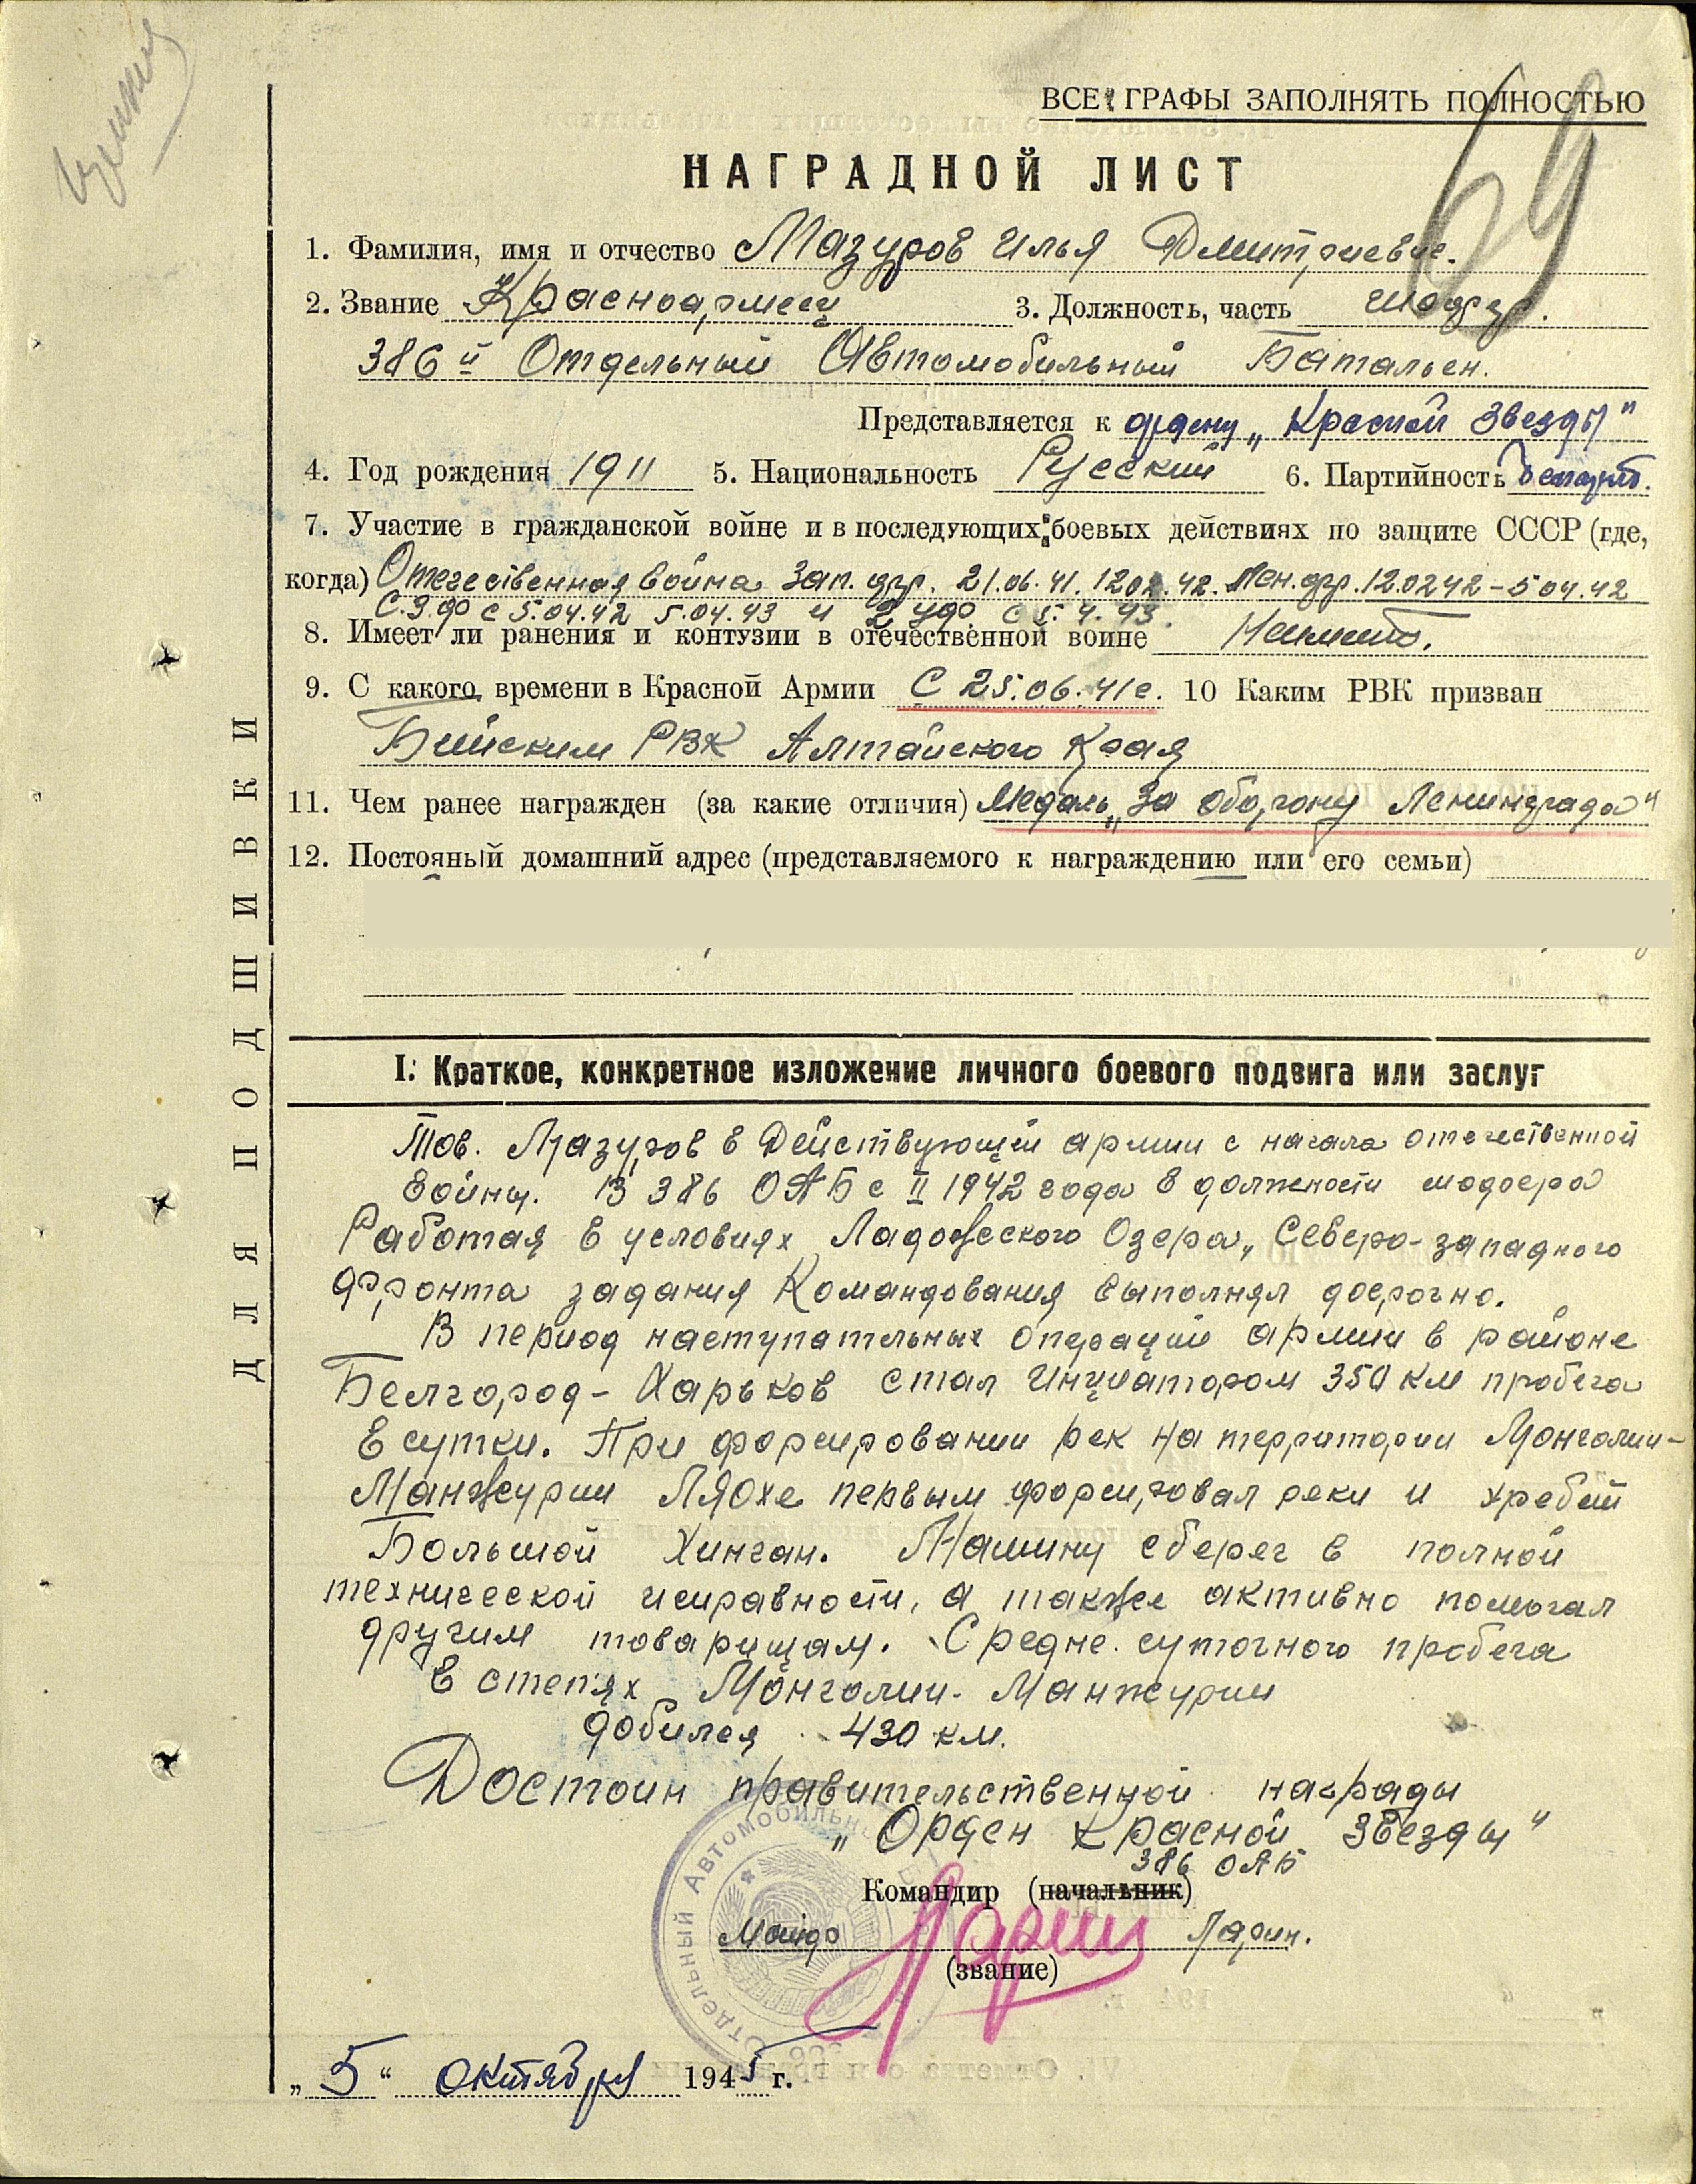 ВСЕ ГРАФЫ ЗАПОЛНЯТЬ ПОЛНОСТЬЮ
69
НАГРАДНОЙ ЛИСТ
1. Фамилия, имя и отчество Мазуров Илья Дмитриевич.
2. Звание Красноармеец 3. Должность, часть шофер.
386й Отдельный Автомобильный Батальен.
Представляется к ордену „Красной Звезды"
4. Год рождения 1911 5. Национальность Русский 6. Партийность
7. Участие в гражданской войне и в последующих боевых действиях по защите СССР (где,
когда) Отечественная война Зап. фр. 21.06.41. 1202.42. Лен. фр. 12.0242-504.42
С.З.фр с 5.04.42 5.04.43 и 2 Уфр. с 5.4.43.
8. Имеет ли ранения и контузии в отечественной войне
9. С какого времени в Красной Армии С 25.06.41г. 10 Каким РВК призван
Бийским РВК Алтайского Края
11. Чем ранее награжден (за какие отличия) Медаль „За оборону Ленинграда"
12. Постояный домашний адрес (представляемого к награждению или его семьи)
I. Краткое, конкретное изложение личного боевого подвига или заслуг
Тов. Мазуров в Действующей армии с начала отечественной
войны. В 386 ОАБ с II 1942 года в должности шофера
Работая в условиях Ладожеского Озера, Северо-западного
фронта задания Командования выполнял досрочно.
В период наступательных операций армии в районе
Белгород-Харьков стал Инциатором 350 км пробега
в сутки. При форсировании рек на территории Монголии-
Манжеурии Ляохе первым форсировал реки и хребет
Большой Хинган. Машину сберег в полной
технической исправности, а также активно помогал
другим товарищам. Средне суточного пробега
в степях Монголии-Манжурии
добился 430 км.
Достоин правительственной награды
„Орден Красной Звезды"
386 ОАБ
Командир (начальник)
Майор Ларин.
(звание)
„5" октября 1945 г.
ДЛЯ ПОДШИВКИ
ОТДЕЛЬНЫЙ АВТОМОБИЛЬН